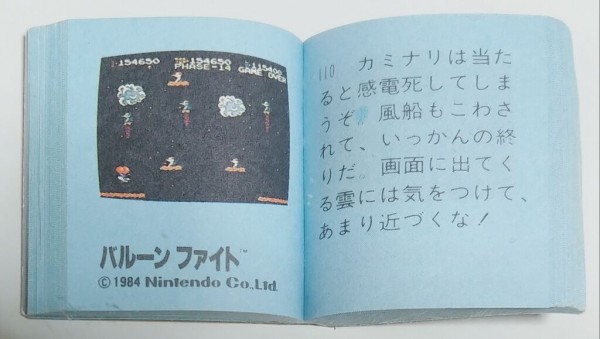 I-154650 TOP-154650 II-115400
PHASE-14 GAME OVER
バルーン ファイト™
©1984 Nintendo Co., Ltd.
110 カミナリは当た
ると感電死してしま
うぞ 風船もこわさ
れて、いっかんの終
りだ。画面に出てく
る雲には気をつけて、
あまり近づくな!